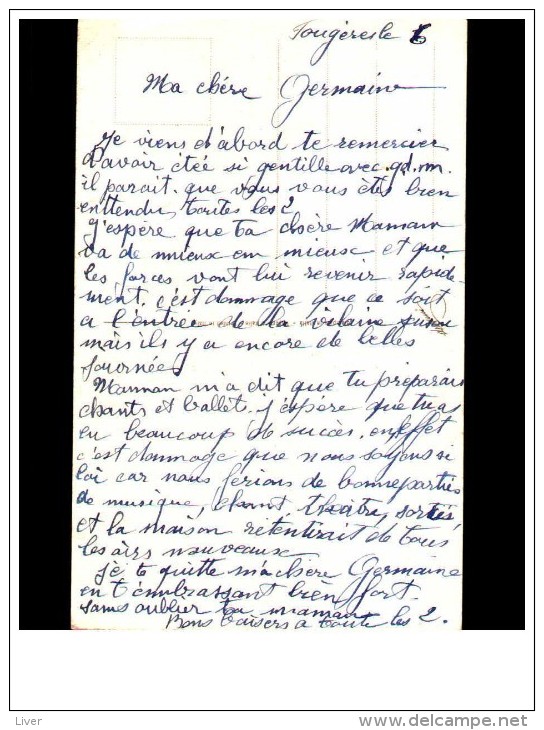 Fougères le 6
Ma chère Germaine
Je viens d'abord te remercier
d'avoir étée si gentille avec gd. m.
il parait que vous vous êtes bien
entendu, toutes les 2
J'espère que ta chère Maman
va de mieux em mieux et que
les forces vont lui revenir rapide-
ment. c'est dommage que ce soit
a l'entrée de la vilaine
mais ils y a encore de belles
journées
Maman m'a dit que tu préparais
chants et ballet. j'espère que tu as
eu beaucoup de succès. en effet
c'est dommage que nous soyons si
loi car nous ferions de bonne parties
de musique, chant, théâtre, sorties,
et la maison retentirait de tous
les airs nouveaux
je te quitte ma chère Germaine
en t'embrassant bien fort.
sans oublier ta maman
Bons baisers a toute les 2.
Liver
www.delcampe.net